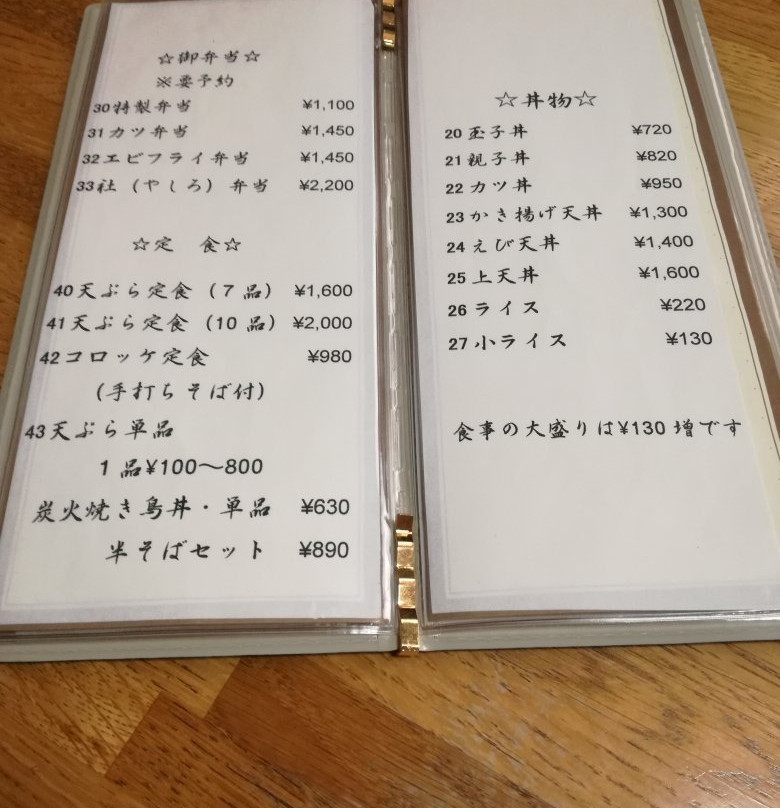 ☆御弁当☆
※要予約
30特製弁当 ¥1,100
31カツ弁当 ¥1,450
32エビフライ弁当 ¥1,450
33社（やしろ）弁当 ¥2,200
☆定 食☆
40天ぷら定食（7品） ¥1,600
41天ぷら定食（10品） ¥2,000
42コロッケ定食 ¥980
（手打ちそば付）
43天ぷら単品
1品¥100～800
炭火焼き鳥丼・単品 ¥630
半そばセット ¥890
☆丼物☆
20玉子丼 ¥720
21親子丼 ¥820
22カツ丼 ¥950
23かき揚げ天丼 ¥1,300
24えび天丼 ¥1,400
25上天丼 ¥1,600
26ライス ¥220
27小ライス ¥130
食事の大盛りは¥130増です